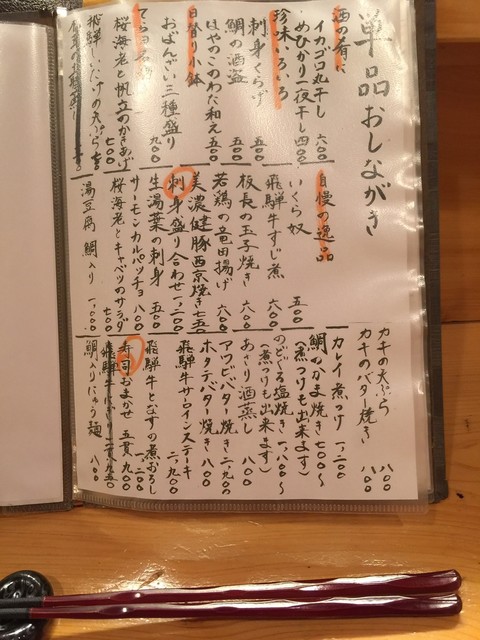 単品おしながき
酒の肴に
イカゴロ丸干し 六〇〇
めひかり一夜干し 四〇〇
珍味いろいろ
刺身くらげ 五〇〇
鯛の酒盗 五〇〇
ほやこのわた和え 五〇〇
日替り小鉢
おばんざい三種盛り 九〇〇
桜海老と帆立のかきあげ 七〇〇
飛騨しいたけの天ぷら
自慢の逸品
いくら奴 五〇〇
飛騨牛すじ煮 六〇〇
板長の玉子焼き 六〇〇
若鶏の竜田揚げ 六〇〇
美濃健豚西京焼き 七五〇
刺身盛り合わせ 一,二〇〇
生湯葉の刺身 五〇〇
サーモンカルパッチョ 八〇〇
桜海老とキャベツのサラダ 七〇〇
湯豆腐 鯛入り 一,〇〇〇
カキの天ぷら 八〇〇
カキのバター焼き 八〇〇
カレイ煮つけ 一,二〇〇
鯛のかま焼き 七〇〇〜
(煮つけも出来ます)
のどぐろ塩焼き 一,八〇〇〜
(煮つけも出来ます)
あさり酒蒸し 八〇〇
アワビバター焼き 二,九〇〇
ホタテバター焼き 八〇〇
飛騨牛サーロインステーキ 二,九〇〇
飛騨牛となすの煮おろし 一,二〇〇
寿司おまかせ 五貫 九〇〇
鯛入りにゅう麺 八〇〇